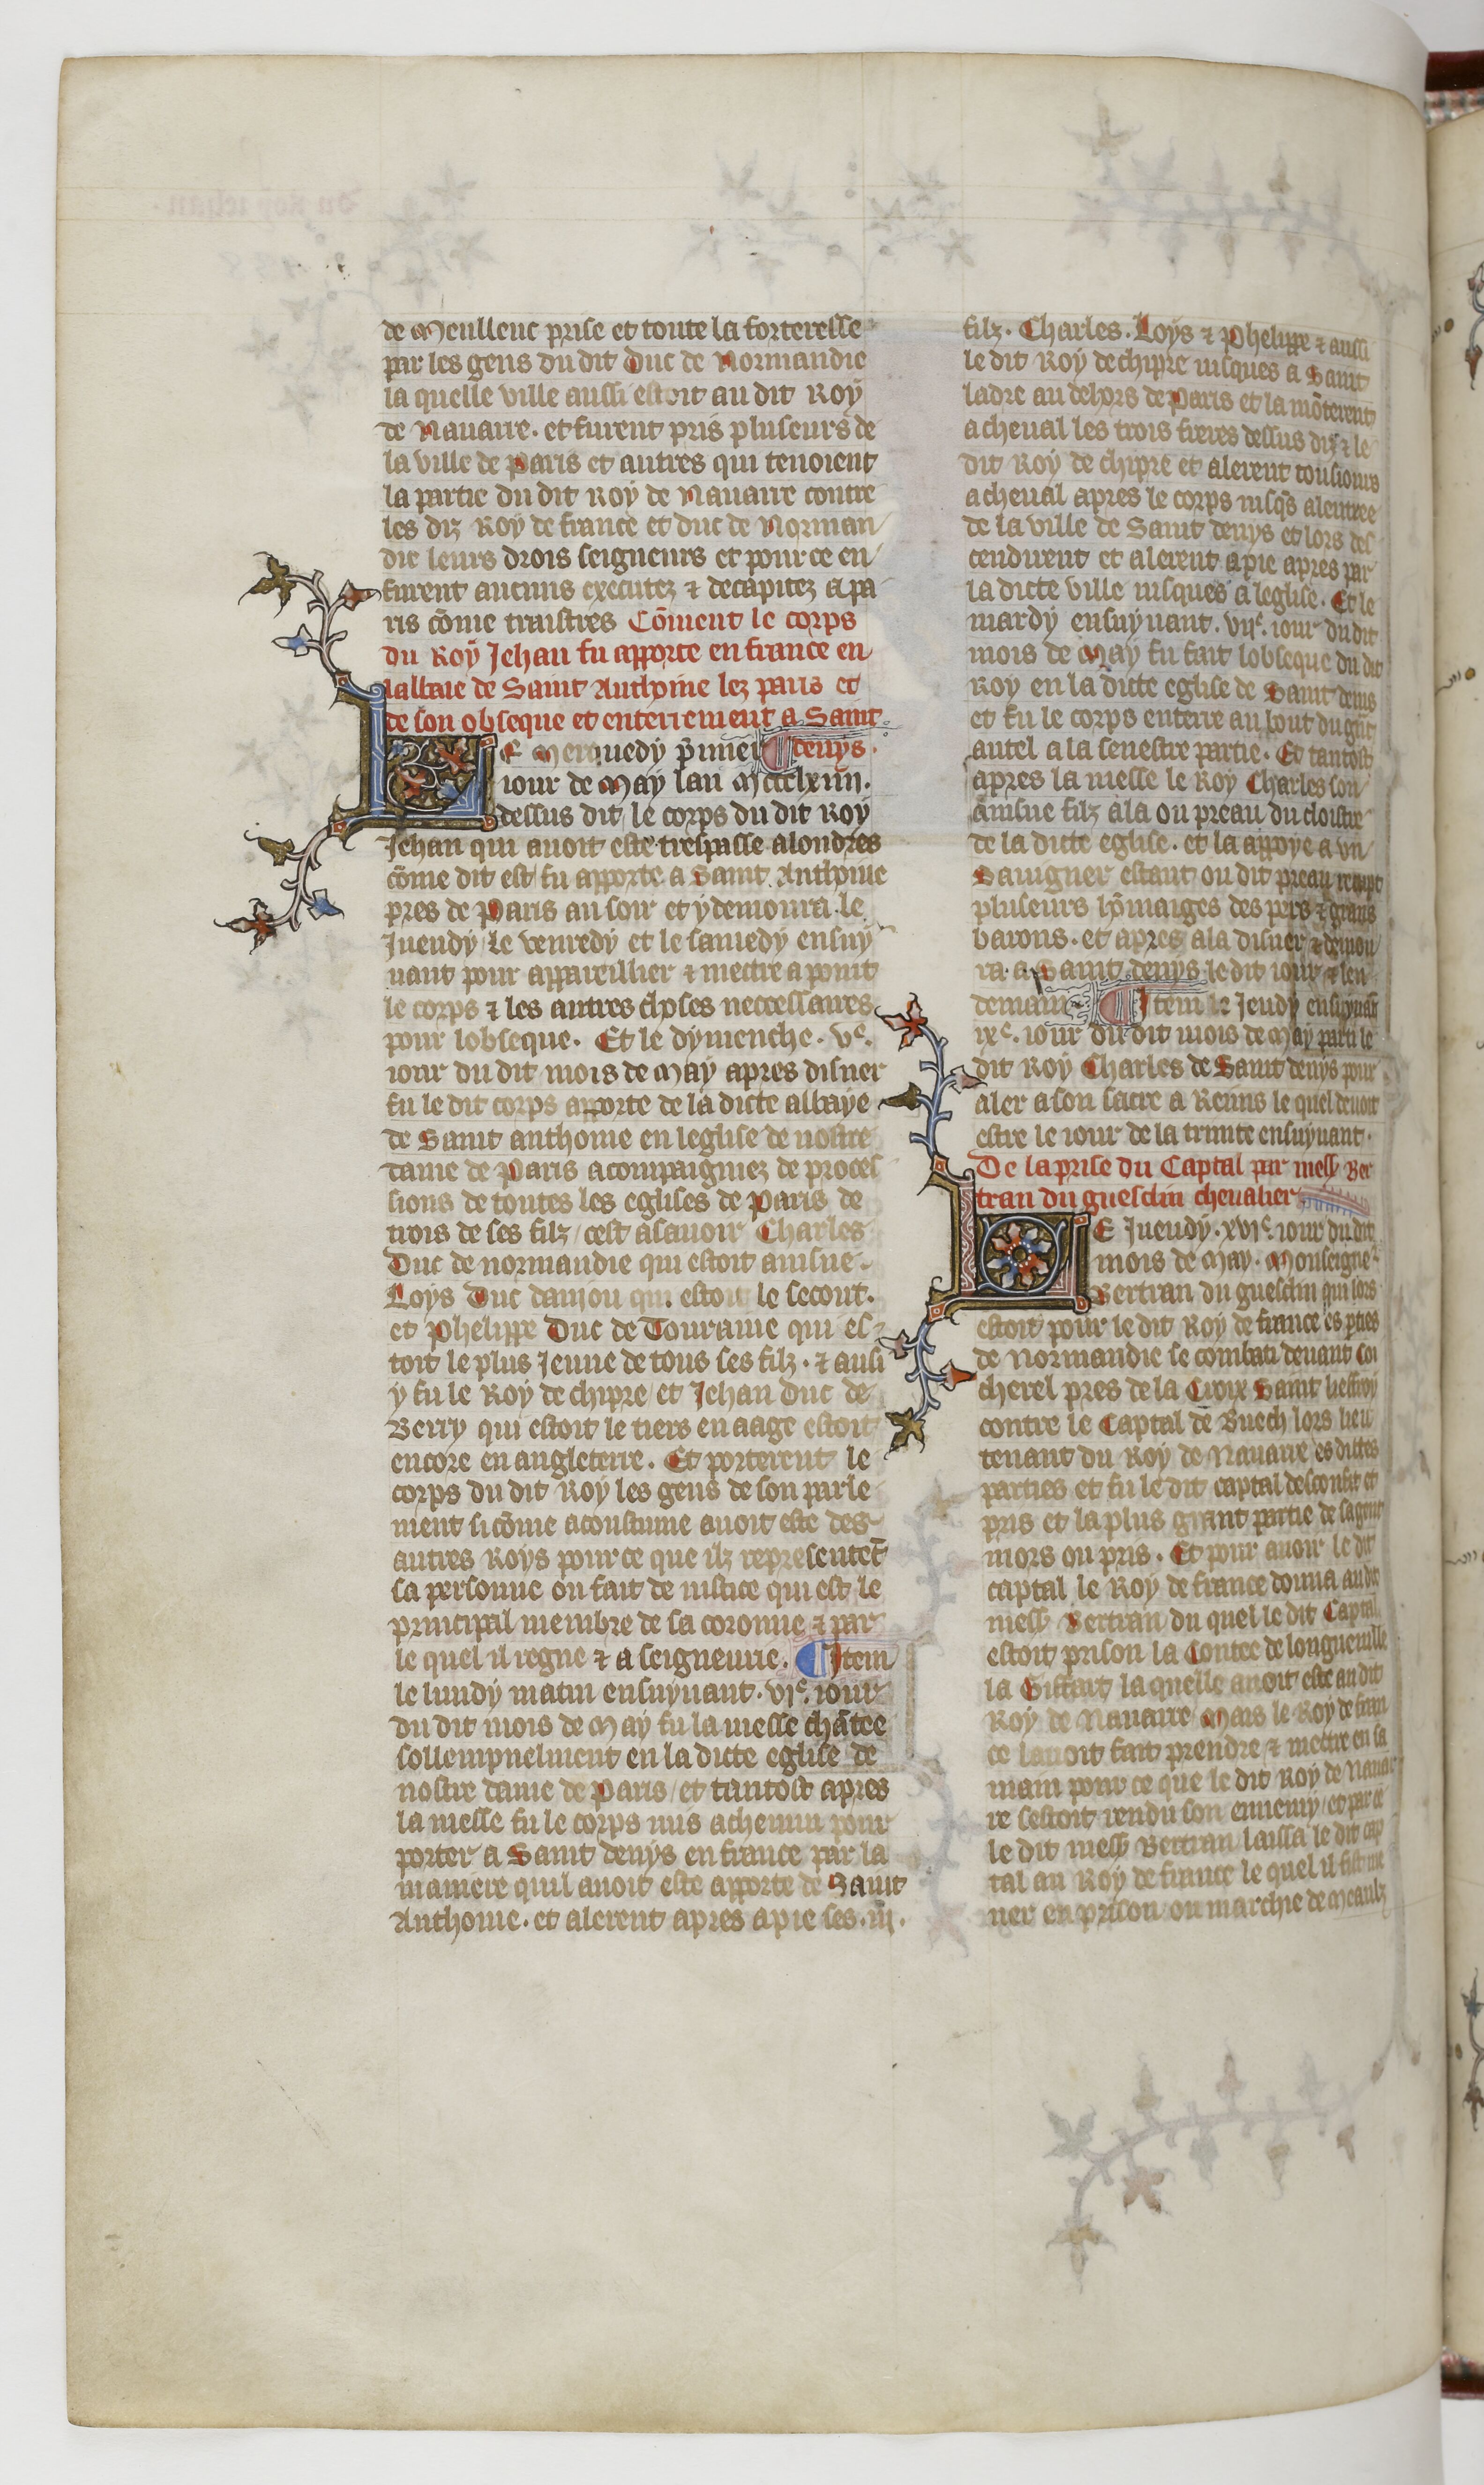 de Meullent prise et toute la forteresse
par les gens du dit Duc de Normandie
la quelle ville aussi estoit au dit Roy
de Nauarre. et furent pris pluseurs de
la ville de Paris et autres qui tenoient
la partie du dit Roy de Nauarre contre
les diz Roy de france et duc de Norman
die leurs drois seigneurs et pour ce en
furent aucuns executez ⁊ decapitez a pa
ris cōme traistres Cōment le corps
du Roy Jehan fu apporte en france en
labbaie de Saint Anthoine lez paris et
de son obseque et enterrement a Saint
LE Merquedy p̄mier denys.
iour de May lan Mccclxiiii.
dessus dit le corps du dit Roy
Jehan qui auoit este trespasse a londres
cōme dit est fu apporte a Saint Anthoine
pres de Paris au soir et y demoura le
Jueudy le venredy et le samedy ensuy
uant pour appareillier ⁊ mectre a point
le corps ⁊ les autres choses neccessaires
pour lobseque. Et le dymenche. vᵉ.
iour du dit mois de May apres disner
fu le dit corps apporte de la dicte abbaye
de Saint anthoine en leglise de nostre
dame de Paris acompaigniez de proces
sions de toutes les eglises de Paris de
trois de ses filz / cest asauoir Charles
Duc de normandie qui estoit ainsne.
Loys Duc daniou qui estoit le secont.
et Phelippe Duc de Touraine qui es
toit le plus Jeune de tous ses filz. ⁊ ausi
y fu le Roy de chipre / et Jehan duc de
Berry qui estoit le tiers en aage estoit
encore en angleterre. Et porterent le
corps du dit Roy les gens de son parle
ment si cōme acoustume auoit este des
autres Roys pour ce que ilz representēt
sa personne ou fait de iustice qui est le
principal membre de sa coronne ⁊ par
le quel il regne ⁊ a seigneurie. Item
le lundy matin ensuyuant. vjᵉ. iour
du dit mois de May fu la messe chātee
sollempnelment en la dicte eglise de
nostre dame de Paris / et tantost apres
la messe fu le corps mis a chemin pour
porter a Saint denys en france par la
maniere quil auoit este apporte de Saint
Anthoine. et alerent apres a pie ses. iij.
filz. Charles. Loys ⁊ Phelippe ⁊ aussi
le dit Roy de chipre iusques a Saint
ladre au dehors de Paris et la mōterent
a cheual les trois freres dessus diz ⁊ le
dit Roy de chipre et alerent tousiours
a cheual apres le corps iusq̄s a lentree
de la ville de Saint denys et lors des
cendirent et alerent a pie apres par
la dicte ville iusques a leglise. Et le
mardy ensuyuant. vijᵉ. iour du dit
mois de May fu fait lobseque du dit
Roy en la dicte eglise de Saint denis
et fu le corps enterre au bout du g̃nt
autel a la senestre partie. Et tantost
apres la messe le Roy Charles son
ainsne filz ala ou preau du cloistre
de la dicte eglise. et la appoye a vn
estant ou dit preau
pluseurs hōmaiges des pers ⁊ grans
barons. et apres ala disner ⁊ demou
ra a Saint denys le dit iour ⁊ len
demain Item le Jeudy ensuyuāt
ixᵉ. iour du dit mois de May parti le
dit Roy Charles de Saint denys pour
aler a son sacre a Reins le quel deuoit
estre le iour de la trinite ensuyuant.
De la prise du Captal par mess̄ Ber
tran du guesclin cheualier
LE Jueudy. xvjᵉ. iour du dit
mois de May. Monseigneʳ
Bertran du guesclin qui lors
estoit pour le dit Roy de france es p̄ties
de Normandie se combati deuant Co
cherel pres de la Croix Saint lieffroy
contre le Captal de Buech lors lieu
tenant du Roy de Nauarre es dittes
parties et fu le dit captal desconfit et
pris et la plus grant partie de sa gent
mors ou pris. Et pour auoir le dit
captal le Roy de france donna au dit
mess̄ Bertran du quel le dit Captal
estoit prison la Contee de longueuille
la Giffart la quelle auoit este au dit
Roy de Nauarre / Mais le Roy de fran
ce lauoit fait prendre ⁊ mettre en sa
main pour ce que le dit Roy de Nauar
re sestoit rendu son ennemy / et par ce
le dit mess̄ Bertran laissa le dit cap
tal au Roy de france le quel il fist me
ner en prison ou marchie de Meaulz